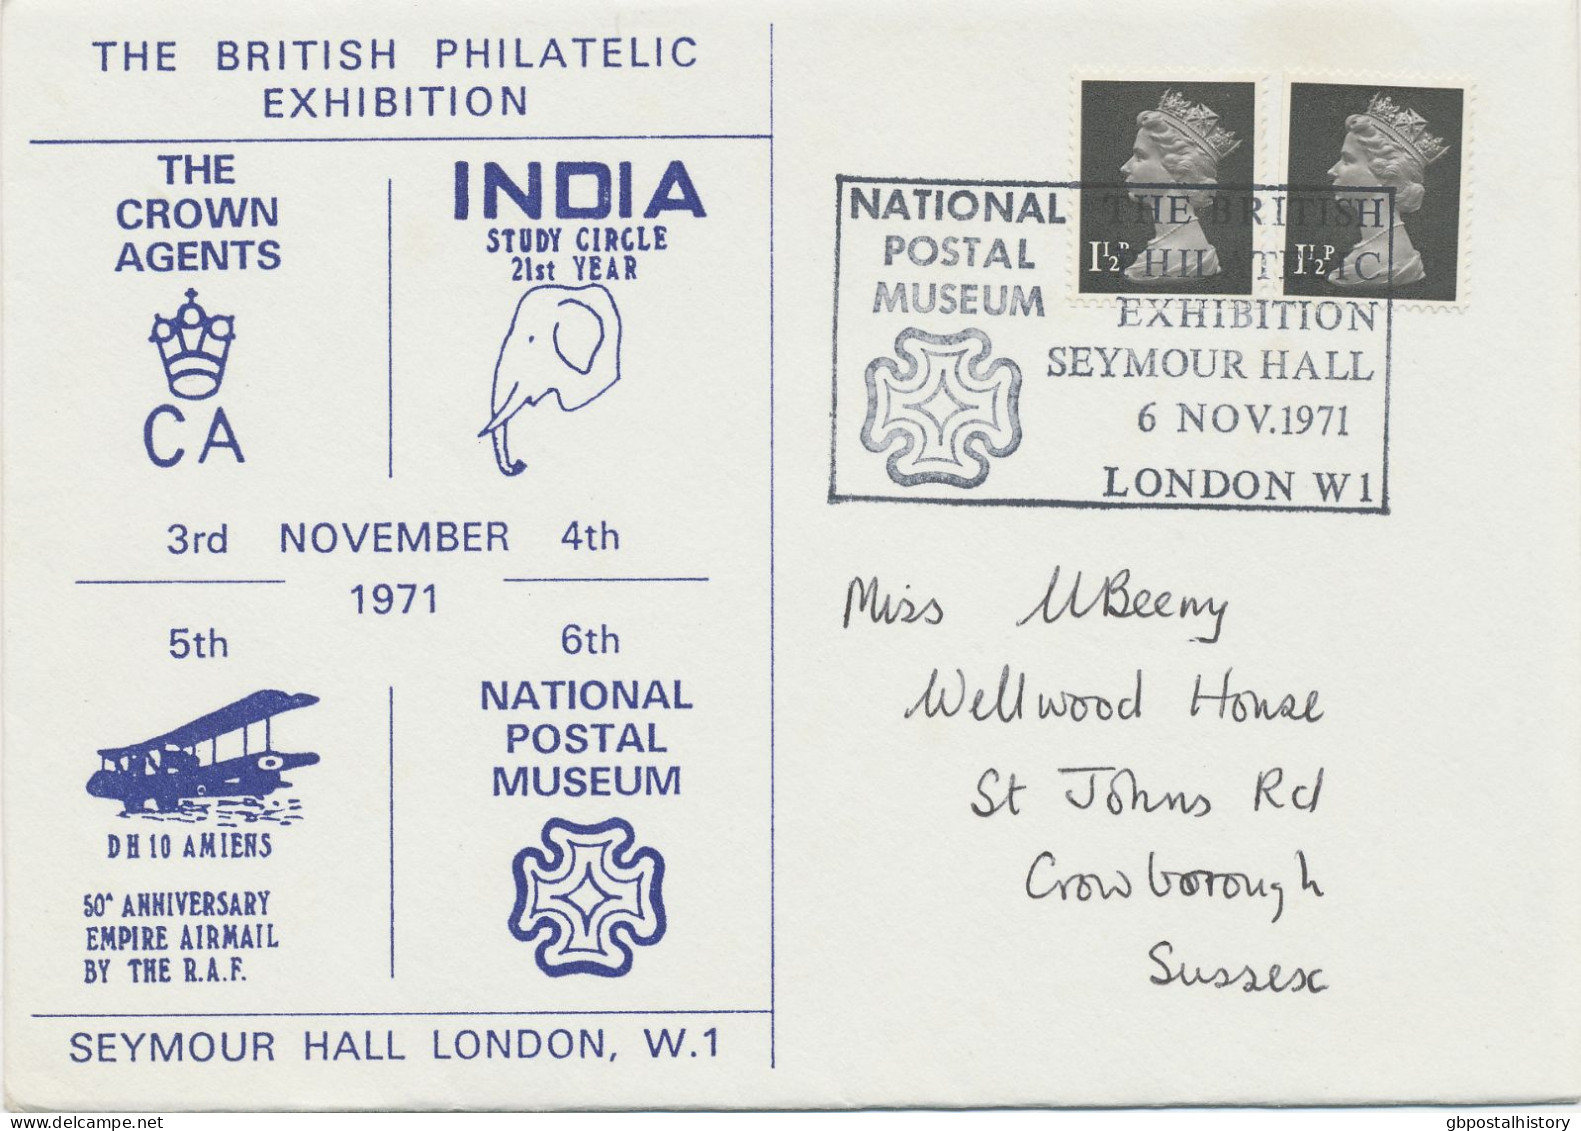 THE BRITISH PHILATELIC
EXHIBITION
THE
CROWN
AGENTS
CA
INDIA
STUDY CIRCLE
21st YEAR
3rd NOVEMBER 4th
1971
5th 6th
DH10 AMIENS
50ᴬ ANNIVERSARY
EMPIRE AIRMAIL
BY THE R.A.F.
NATIONAL
POSTAL
MUSEUM
SEYMOUR HALL LONDON, W.1
1½P
1½P
NATIONAL
POSTAL
MUSEUM
THE BRITISH
PHILATELIC
EXHIBITION
SEYMOUR HALL
6 NOV.1971
LONDON W1
Miss Beeny
Wellwood House
St Johns Rd
Crowborough
Sussex
gbpostalhistory